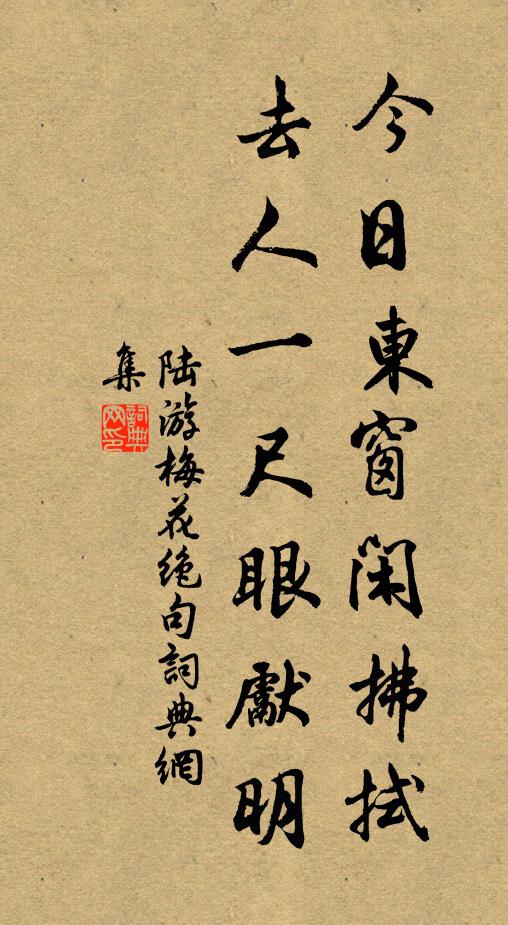 今日東窗閑拂拭
去人一尺眼獻明
陆游梅花绝句詞典網
集
詞典网印